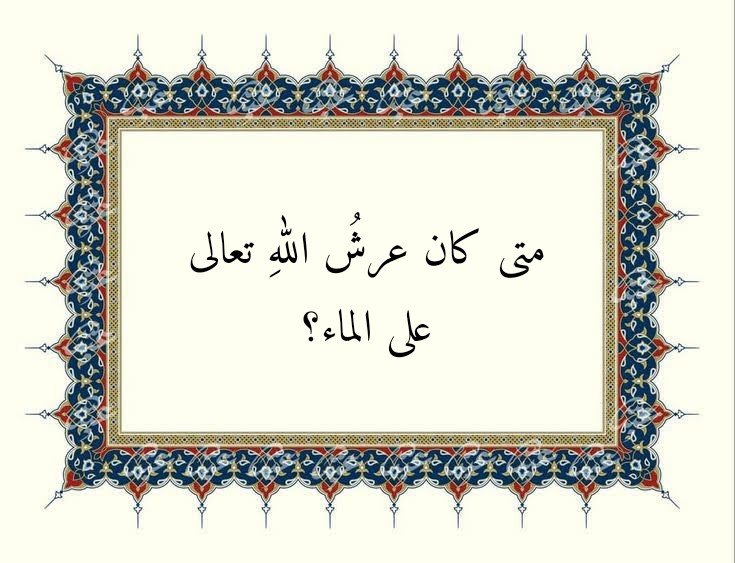 متى كان عرشُ اللهِ تعالى
على الماء؟